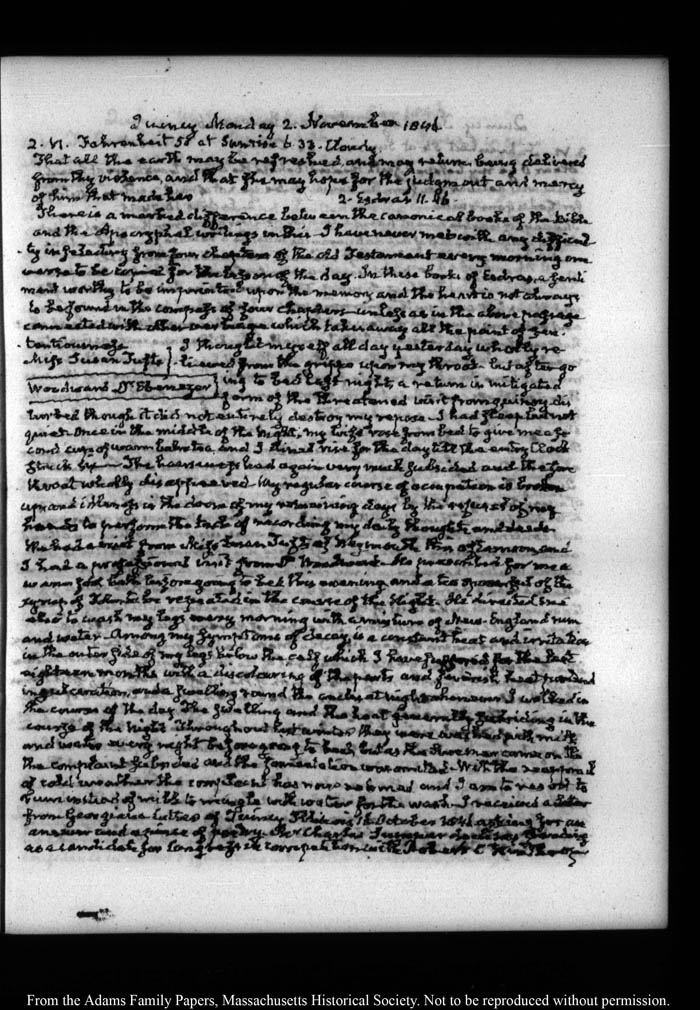 Quincy Monday 2. November 1846
2. VI. Fahrenheit 58 at Sunrise 6.33. Cloudy
That all the earth may be refreshed, and may return being delivered
from thy violence, and that she may hope for the judgment and mercy
of him that made her 2. Esdras 11.46
There is a marked difference between the canonical books of the bible
and the Apocryphal writings in this. I have never met with any difficul-
ty in selecting from four chapters of the Old Testament every morning one
verse to be copied for the lesson of the day. In these books of Esdras, a senti
ment worthy to be imprinted upon the memory and the heart is not always
to be found in the compass of four chapters unless as in the above passage
connected with other verbiage which takes away all the point of sen
tentiousness I thought myself all day yesterday wholly re
Miss Susan Tufts lieved from the gripe upon my throat. but after go
Woodward Dr. Ebenezer ing to bed last night, a return in mitigated
form of the threatened visit from quincy dis
turbed though it did not entirely destroy my repose. I had sleep but not
quiet. Once in the middle of the Night, my wife rose from bed to give me a se
cond cup of warm balm tea, and I did not rise for the day till the entry Clock
Struck Six. The hoarseness had again very much subsided and the sore
throat wholly disappeared. My regular course of occupation is broken
up and idleness is the doom of my remaining days by the refusal of my
hands to perform the task of recording my daily thoughts and deeds
We had a visit from Miss Susan Tufts of Weymouth this afternoon and
I had a professional visit from Dr Woodward. He prescribed for me a
warm foot bath before going to bed this evening and a tea spoonful of the
syrup of to be repeated in the course of the Night. He directed me
also to wash my legs every morning with a mixture of New-England rum
and water. Among my Symptoms of decay, is a constant heat and irritation
in the outer side of my legs below the calf which I have suffered for the last
eighteen months with a discolouring of the parts and feverish heat
ing ulceration, and a swelling round the ancles at night whenever I walked in
the course of the day. The swelling and the heat generally subsiding in the
course of the Night. Throughout last winter they were washed with milk
and water every night before going to bed, but as the Summer came on
the complaint subsided and the fomentation was omitted. With the reappearance
of cold weather the complaint has now returned and I am to resort to
rum instead of milk to mingle with water for the wash. I received a Letter
from Georgiana of Quincy Illinois 16 October 1846 asking for an
answer and a piece of poetry. Mr Charles Sumner declines standing
as a candidate for Congress in competition with Robert C Winthrop
From the Adams Family Papers, Massachusetts Historical Society. Not to be reproduced without permission.